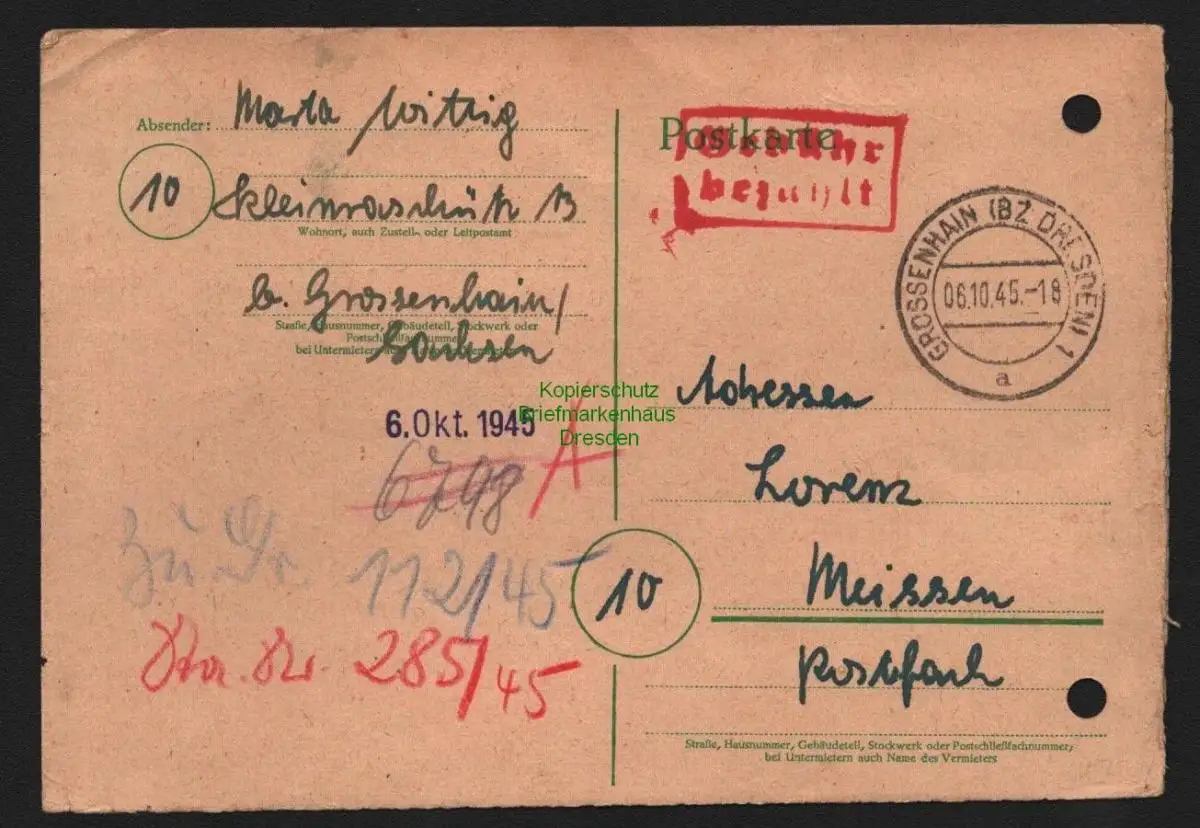 Absender: Marta Wittig
10
Kleinraschütz 13
Wohnort, auch Zustell- oder Leitpostamt
b. Grossenhain/
Straße, Hausnummer, Gebäudeteil, Stockwerk oder
Postschließfachnummer
bei Untermietern auch Name des Vermieters
Sachsen
6. Okt. 1945
6798 A
112/45
285/45
Postkarte
Gebühr
bezahlt
GROSSENHAIN (BZ DRESDEN) 1
06.10.45.-18
a
Kopierschutz
Briefmarkenhaus
Dresden
Adressen
Lorenz
10
Meissen
Postfach
Straße, Hausnummer, Gebäudeteil, Stockwerk oder Postschließfachnummer;
bei Untermietern auch Name des Vermieters